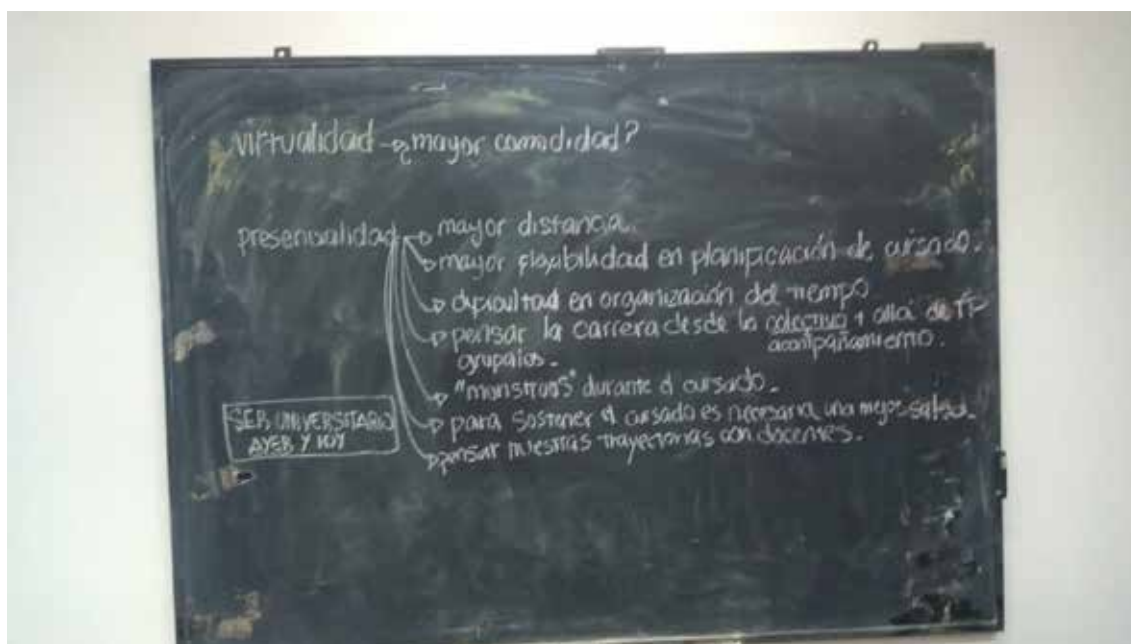 virtualidad → mayor comodidad?
presencialidad → mayor distancia.
→ mayor flexibilidad en planificación de cursado.
→ dificultad en organización del tiempo
→ pensar la carrera desde lo colectivo + allá de TP
grupales. acompañamiento.
→ "monstruos" durante el cursado.
→ para sostener el cursado es necesaria una mejor salud.
→ pensar nuestras trayectorias con docentes.
SER UNIVERSITARIO
AYER Y HOY